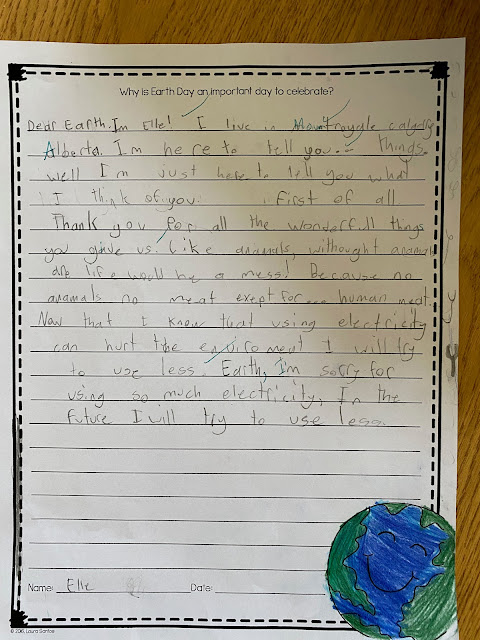 Why is Earth Day an important day to celebrate?
Dear Earth. Im Elle! I live in Mountroyyle calgary
Alberta. I'm here to tell you... Things.
well I'm just here to tell you what
I think of you. First of all
Thank you for all the wonderfull things
you gave us. Like anamals, withought anamals
life would be a mess! Because no
anamals no meat exept for... human meat.
Now that I know that using electricity
can hurt the enviroment I will try
to use less. Earth, I'm sorry for
using so much electricity, In the
future I will try to use less.
Name: Elle Date:
© 2016, Laura Santos